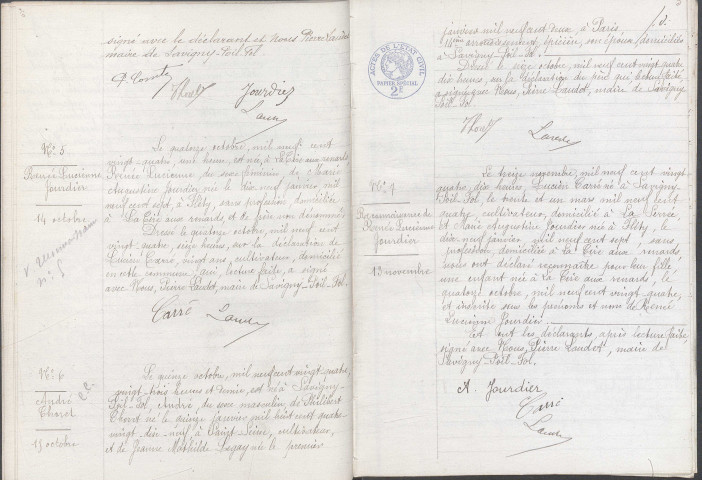 signé avec le déclarant et Nous Pierre Laudot
maire de Savigny-Poil-Fol.
Jourdier
Laudot
N° 5
Renée Lucienne
Jourdier
14 octobre
V. reconnaissance
n° 7
Le quatorze octobre, mil neuf cent
vingt-quatre, une heure, est née, à La Cére aux renards,
Renée Lucienne du sexe féminin, de Marie
Augustine Jourdier, née le dix neuf janvier, mil
neuf cent sept, à , sans profession, domiciliée
à La Cére aux renards et de père non dénommé.
Dressé le quatorze octobre, mil neuf cent
vingt-quatre, seize heures, sur la déclaration de
Lucien Carré, vingt ans, cultivateur, domicilié
en cette commune, qui, lecture faite, a signé
avec Nous, Pierre Laudot, maire de Savigny-Poil-Fol.
Carré Laudot
N° 6
André
Thoret
15 octobre
Le quinze octobre, mil neuf cent vingt quatre,
vingt-trois heures et demie, est né à Savigny-
Poil-Fol, André, du sexe masculin, de Philibert
Thoret né le quinze janvier mil huit cent quatre
vingt dix-neuf à , cultivateur,
et de Jeanne Mathilde née le premier
janvier mil neuf cent deux, à Paris
arrondissement, épicière, son épouse, domiciliés
à Savigny-Poil-Fol.
Dressé le seize octobre, mil neuf cent vingt quatre
dix heures, sur la déclaration du père qui, lecture faite,
a signé avec Nous, Pierre Laudot, maire de Savigny
Poil-Fol.
Thoret Laudot
ACTES DE L'ÉTAT CIVIL
PAPIER SPÉCIAL
2F
N° 7
Reconnaissance de
Renée Lucienne
Jourdier
13 novembre
Le treize novembre, mil neuf cent vingt
quatre, dix heures, Lucien Carré né à Savigny-
Poil-Fol, le trente et un mars mil neuf cent
quatre, cultivateur, domicilié à La Serrée
et Marie Augustine Jourdier née à , le
dix neuf janvier, mil neuf cent sept, sans
profession, domiciliée à La Cére aux renards,
nous ont déclaré reconnaître pour leur fille
une enfant née à La Cére aux renards, le
quatorze octobre, mil neuf cent vingt quatre,
et inscrite sous les prénoms et nom de Renée
Lucienne Jourdier.
Et ont les déclarants, après lecture faite,
signé avec Nous, Pierre Laudot, maire de
Savigny-Poil-Fol.
A. Jourdier
Carré
Laudot